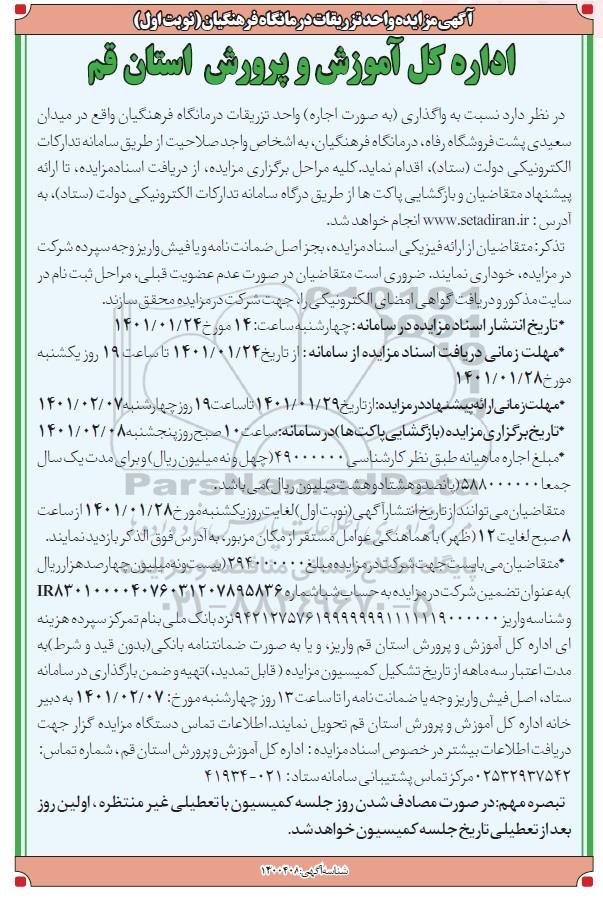 آگهی مزایده واحد تزریقات درمانگاه فرهنگیان (نوبت اول)
اداره کل آموزش و پرورش استان قم
در نظر دارد نسبت به واگذاری (به صورت اجاره) واحد تزریقات درمانگاه فرهنگیان واقع در میدان
سعیدی پشت فروشگاه رفاه، درمانگاه فرهنگیان، به اشخاص واجد صلاحیت از طریق سامانه تدارکات
الکترونیکی دولت (ستاد)، اقدام نماید. کلیه مراحل برگزاری مزایده، از دریافت اسناد مزایده، تا ارائه
پیشنهاد متقاضیان و بازگشایی پاکت ها از طریق درگاه سامانه تدارکات الکترونیکی دولت (ستاد)، به
آدرس : www.setadiran.ir انجام خواهد شد.
تذکر: متقاضیان از ارائه فیزیکی اسناد مزایده، بجز اصل ضمانت نامه و یا فیش واریز وجه سپرده شرکت
در مزایده، خوداری نمایند. ضروری است متقاضیان در صورت عدم عضویت قبلی، مراحل ثبت نام در
سایت مذکور و دریافت گواهی امضای الکترونیکی را، جهت شرکت در مزایده محقق سازند.
*تاریخ انتشار اسناد مزایده در سامانه : چهارشنبه ساعت: ۱۴ مورخ ۱۴۰۱/۰۱/۲۴
*مهلت زمانی دریافت اسناد مزایده از سامانه : از تاریخ ۱۴۰۱/۰۱/۲۴ تا ساعت ۱۹ روز یکشنبه
مورخ ۱۴۰۱/۰۱/۲۸
*مهلت زمانی ارائه پیشنهاد در مزایده: از تاریخ ۱۴۰۱/۰۱/۲۹ تا ساعت ۱۹ روز چهارشنبه ۱۴۰۱/۰۲/۰۷
*تاریخ برگزاری مزایده (بازگشایی پاکت ها) در سامانه: ساعت ۱۰ صبح روز پنجشنبه ۱۴۰۱/۰۲/۰۸
*مبلغ اجاره ماهیانه طبق نظر کارشناسی ۴۹۰۰۰۰۰۰ (چهل و نه میلیون ریال) و برای مدت یک سال
جمعا ۵۸۸۰۰۰۰۰۰ (پانصد و هشتاد و هشت میلیون ریال) می باشد.
متقاضیان می توانند از تاریخ انتشار آگهی (نوبت اول) لغایت روز یکشنبه مورخ ۱۴۰۱/۰۱/۲۸ از ساعت
۸ صبح لغایت ۱۲ (ظهر) با هماهنگی عوامل مستقر از مکان مزبور، به آدرس فوق الذکر بازدید نمایند.
*متقاضیان می بایست جهت شرکت در مزایده مبلغ ۲۹۴۰۰۰۰۰ (بیست و نه میلیون چهارصد هزار ریال
) به عنوان تضمین شرکت در مزایده به حساب شبا شماره IR۸۳۰۱۰۰۰۰۴۰۷۶۰۳۱۲۰۷۸۹۵۸۳۶
و شناسه واریز نزد بانک ملی بنام تمرکز سپرده هزینه
ای اداره کل آموزش و پرورش استان قم واریز، و یا به صورت ضمانتنامه بانکی (بدون قید و شرط) به
مدت اعتبار سه ماهه از تاریخ تشکیل کمیسیون مزایده ( قابل تمدید،) تهیه و ضمن بارگذاری در سامانه
ستاد، اصل فیش واریز وجه یا ضمانت نامه را تا ساعت ۱۳ روز چهارشنبه مورخ: ۱۴۰۱/۰۲/۰۷ به دبیر
خانه اداره کل آموزش و پرورش استان قم تحویل نمایند. اطلاعات تماس دستگاه مزایده گزار جهت
دریافت اطلاعات بیشتر در خصوص اسناد مزایده : اداره کل آموزش و پرورش استان قم ، شماره تماس:
۰۲۵۳۲۹۳۷۵۴۲ مرکز تماس پشتیبانی سامانه ستاد : ۰۲۱-۴۱۹۳۴
تبصره مهم: در صورت مصادف شدن روز جلسه کمیسیون با تعطیلی غیر منتظره ، اولین روز
بعد از تعطیلی تاریخ جلسه کمیسیون خواهد شد.
شناسه آگهی: ۱۳۰۰۴۰۸
ParsNamadData
۰۲۱-۸۸۳۴۹۶۷۰-۵